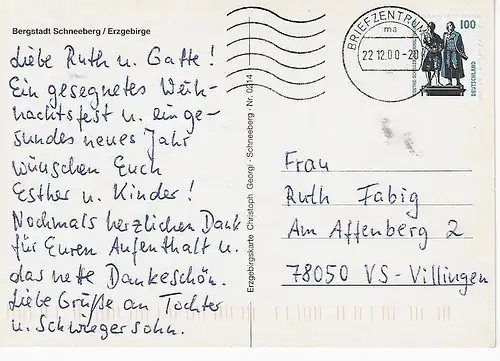 Bergstadt Schneeberg / Erzgebirge
Liebe Ruth u. Gatte!
Ein gesegnetes Weih-
nachtsfest u. ein ge-
sundes neues Jahr
wünschen Euch
Esther u. Kinder!
Nochmals herzlichen Dank
für Euren Aufenthalt u.
das nette Dankeschön.
Liebe Grüße an Tochter
u. Schwiegersohn.
Erzgebirgskarte Christoph Georgi · Schneeberg · Nr. 0214
BRIEFZENTRUM
ma
22.12.00-20
100
DEUTSCHLAND
Frau
Ruth Fabig
Am Affenberg 2
78050 VS-Villingen